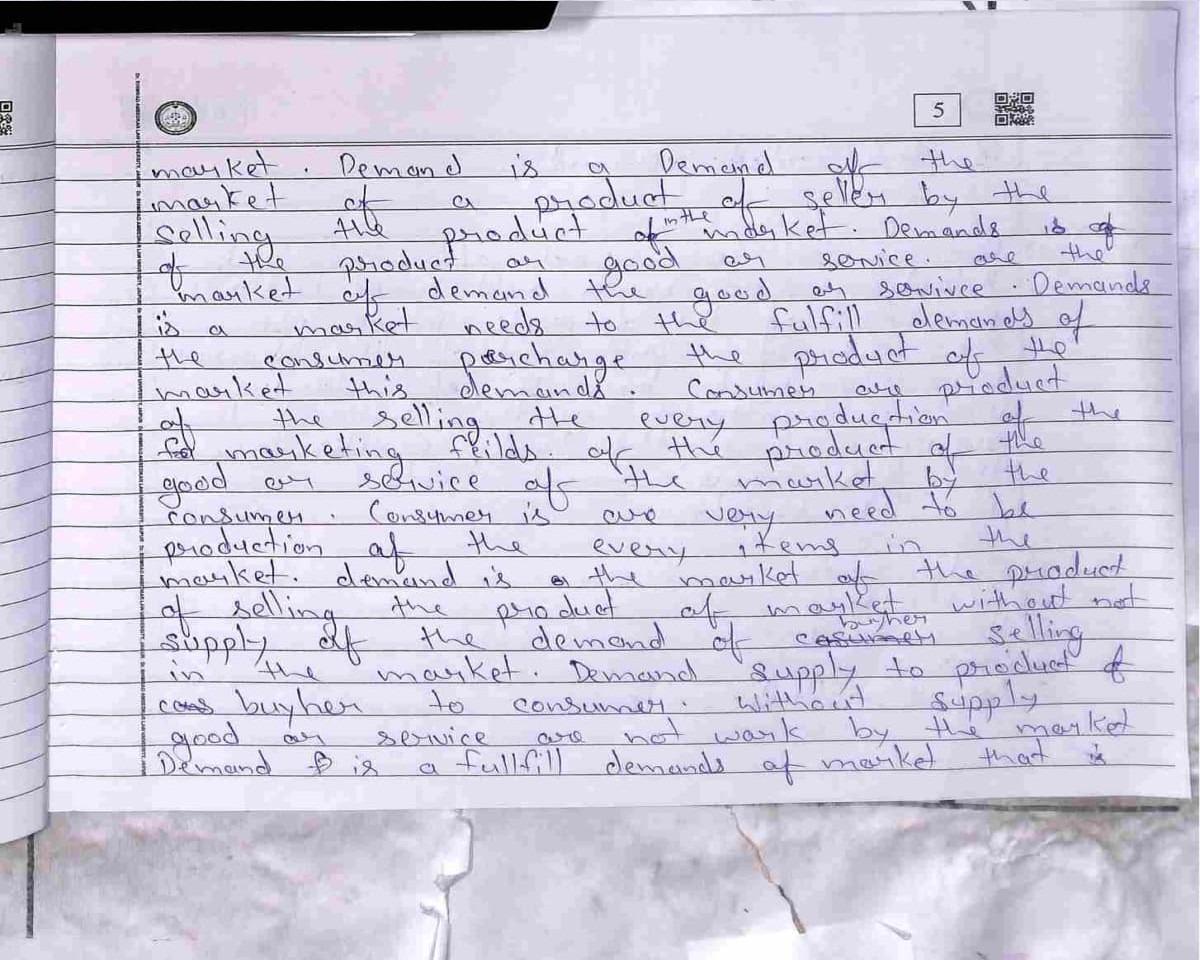 5
market. Demand is a Demand of the
market of a product of seller by the
selling the product of in the market. Demands is of
of the product or good or service. are the
market of demand the good or servivce. Demands
is a market needs to the fulfill demands of
the consumer percharge the product of the
market this demands. Consumer are product
of the selling the every production of the
marketing feilds. of the product of the
good or service of the market by the
consumer. Consymer is are very need to be
production of the every items in the
market. demand is a the market of the product
of selling the product of market without not
supply of the demand of buyher selling
in the market. Demand supply to product of
cons buyher to consumer. without supply
good or service are not work by the market
Demand is a fullfill demands of market that is